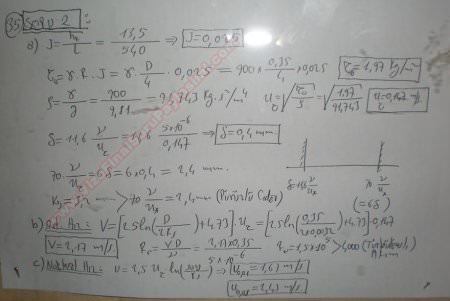 35 SORU 2 :
a) J = hk/L = 13,5/540 ⇒ J = 0,025
τ₀ = γ.R.J = γ.D/4.0,025 = 900 x 0,35/4 x 0,025 τ₀ = 1,97 kg/m²
ρ = γ/g = 900/9,81 = 91,743 kg.s²/m⁴ u = √τ₀/ρ = √1,97/91,743 u = 0,147 m/s
δ = 11,6 ν/u = 11,6 5x10⁻⁶/0,147 ⇒ δ = 0,4 mm.
70 ν/u = 6δ = 6x0,4 = 2,4 mm.
> 70 ν/u = 2,4 mm (Pürüzlü Cidar)
δ = 11,6 ν/u 70 ν/u
(= 6δ)
b) Ort. Hız: V = [2,5 ln(D/2ks) + 4,73].u = [2,5 ln(0,35/2x0,0032) + 4,73].0,147
V = 2,17 m/s Re = VD/ν = 2,17x0,35/5x10⁻⁶ Re = 1,5x10⁵ > 4000 (Türbülanslı Akım)
c) Hız: u = 2,5 u ln( ) ⇒ = 1,67 m/s
= 1,43 m/s